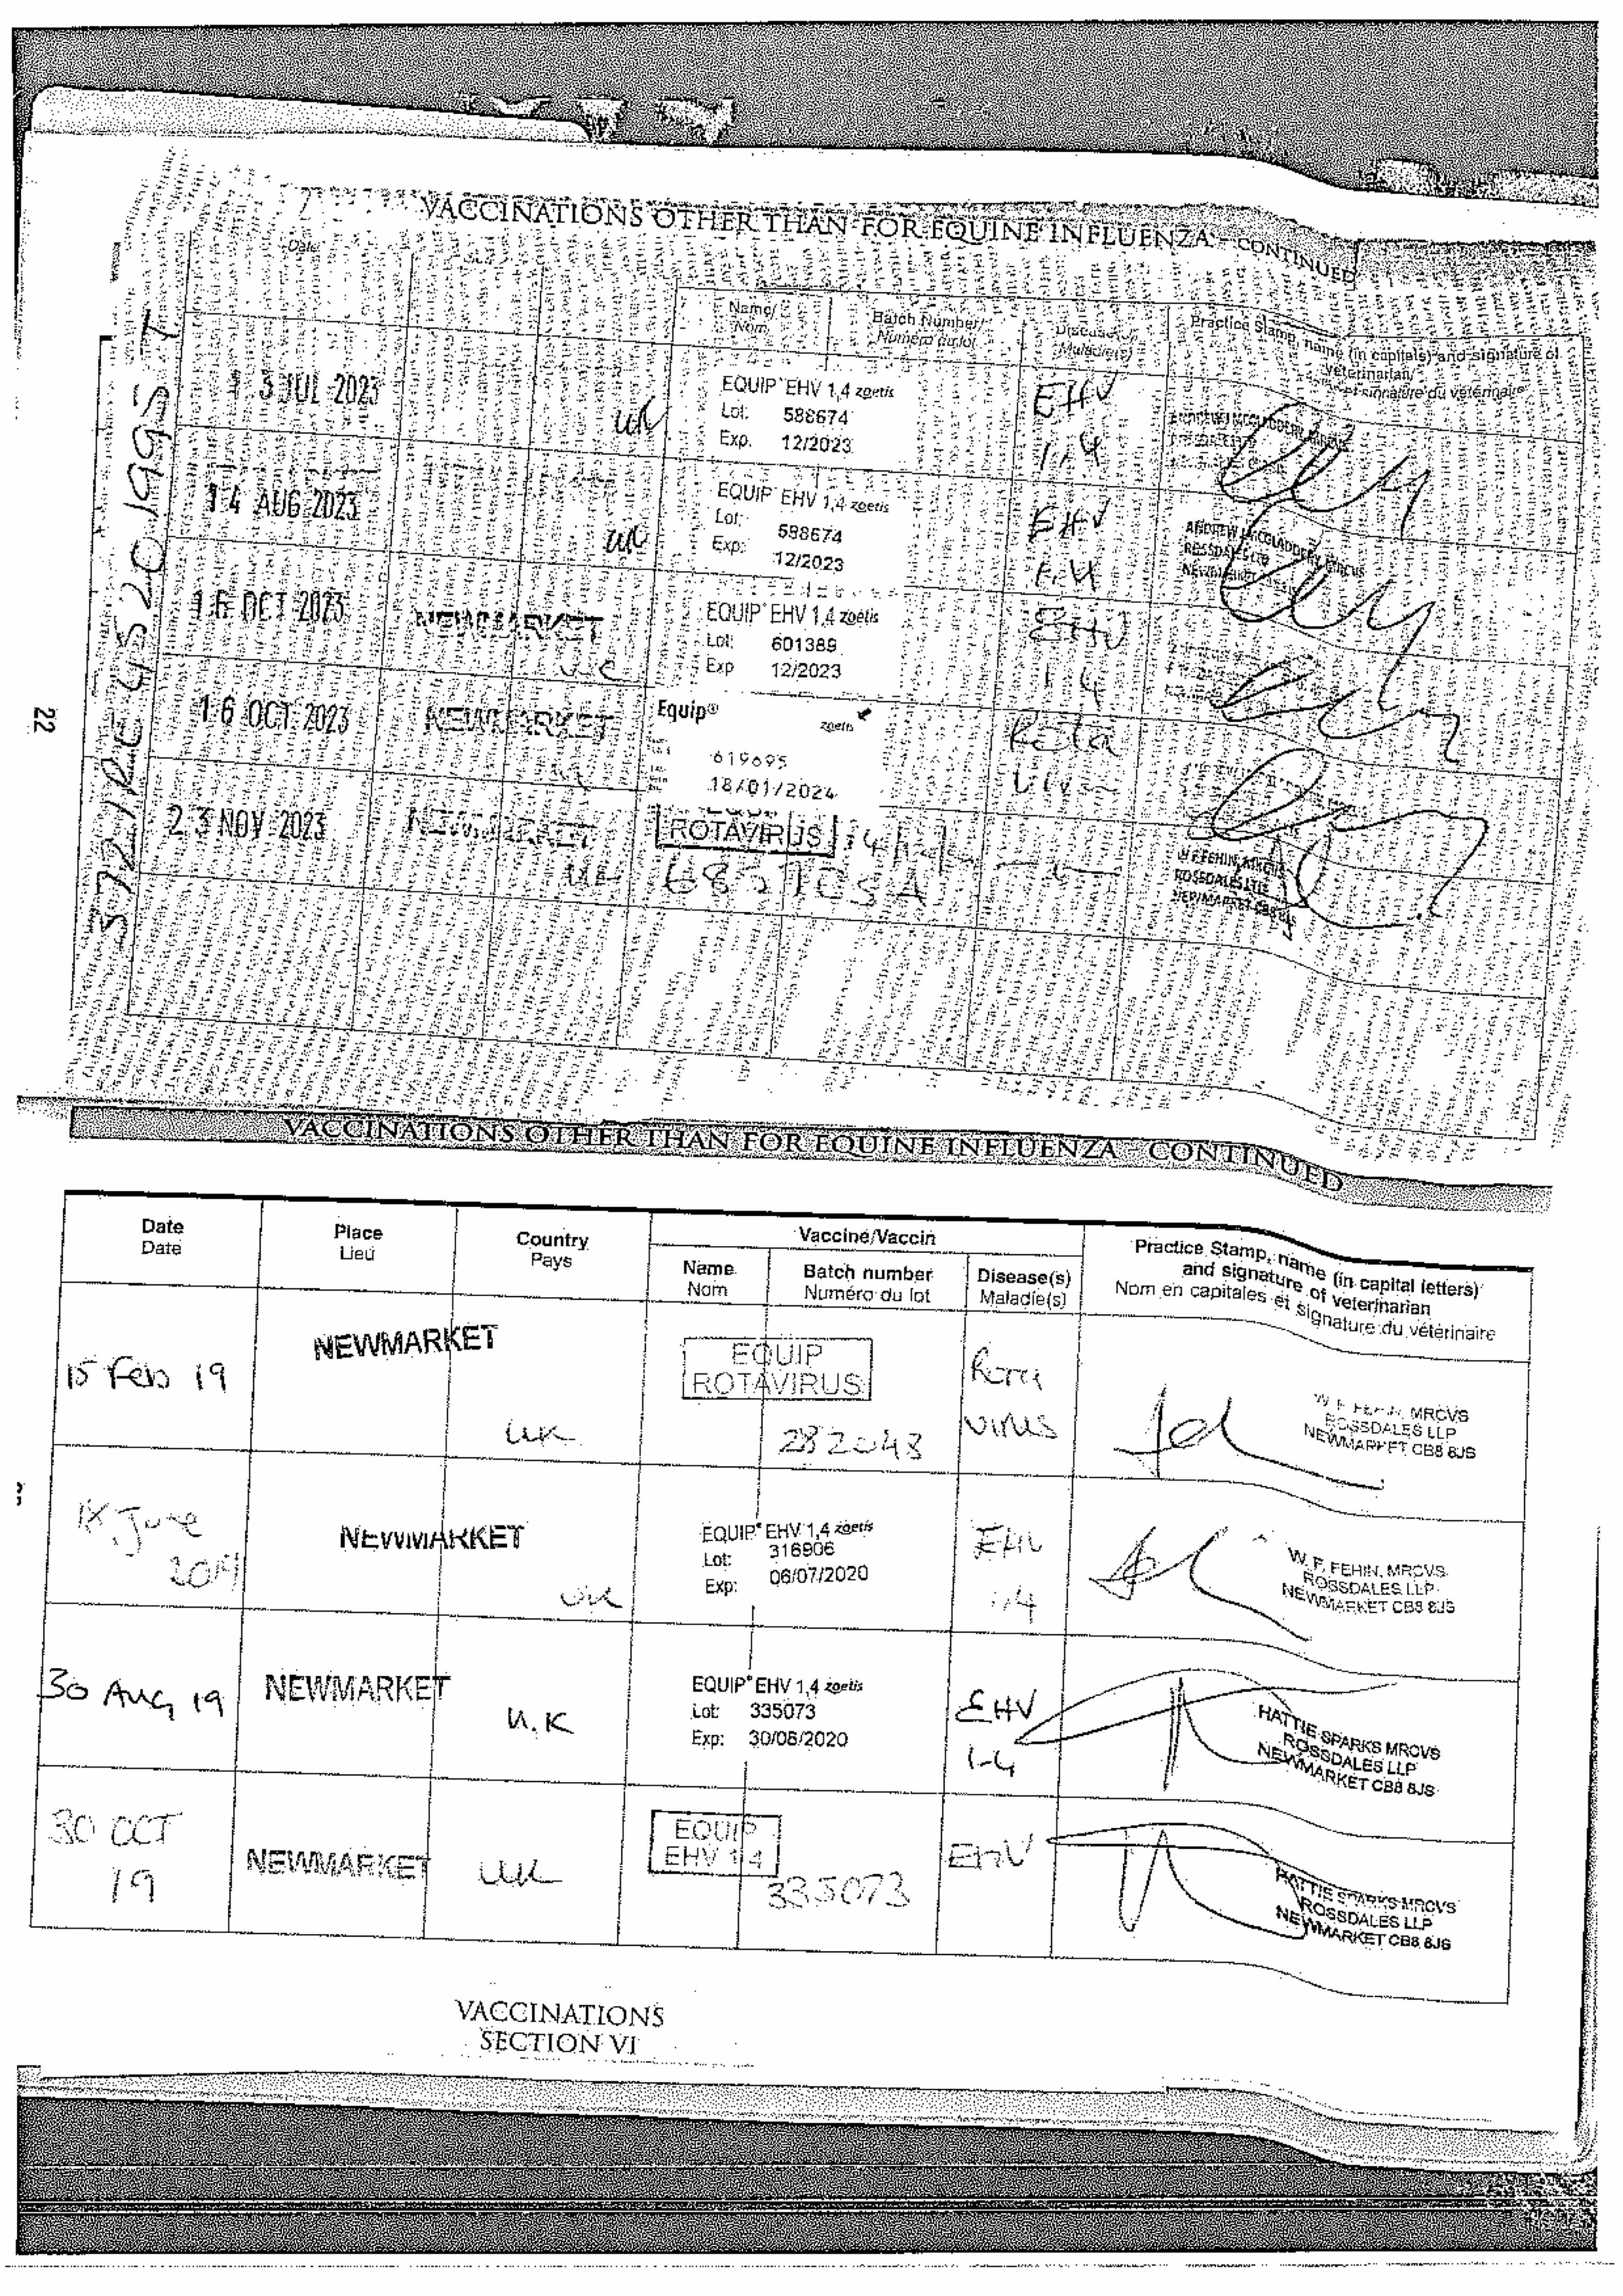 VACCINATIONS OTHER THAN FOR EQUINE INFLUENZA - CONTINUED
Date
Name/ Batch Number/ Disease(s)/ Practice Stamp, name (in capitals) and signature of
Nom Numéro du lot Maladie(s) veterinarian/
et signature du vétérinaire
13 JUL 2023 UK EQUIP EHV 1,4 zoetis EHV
Lot: 588674 1,4
Exp. 12/2023
14 AUG 2023 UK EQUIP EHV 1,4 zoetis EHV ANDREW MCGLADDERY MRCVS
Lot: 588674 1,4 ROSSDALES LTD
Exp: 12/2023 NEWMARKET
16 OCT 2023 NEWMARKET UK EQUIP EHV 1,4 zoetis EHV
Lot: 601389 1,4
Exp 12/2023
16 OCT 2023 NEWMARKET Equip® zoetis Rota
619695 Virus
18/01/2024
23 NOV 2023 NEWMARKET UK ROTAVIRUS W F FEHIN, MRCVS
ROSSDALES LTD
NEWMARKET CB8 8JS
22
VACCINATIONS OTHER THAN FOR EQUINE INFLUENZA - CONTINUED
Date Place Country Vaccine/Vaccin Practice Stamp, name (in capital letters)
Date Lieu Pays and signature of veterinarian
Name Batch number Disease(s) Nom en capitales et signature du vétérinaire
Nom Numéro du lot Maladie(s)
15 Feb 19 NEWMARKET UK EQUIP Rota W. F. FEHIN, MRCVS
ROTAVIRUS virus ROSSDALES LLP
282048 NEWMARKET CB8 8JS
18 June NEWMARKET UK EQUIP EHV 1,4 zoetis EHV W. F. FEHIN, MRCVS
2019 Lot: 316906 1,4 ROSSDALES LLP
Exp: 06/07/2020 NEWMARKET CB8 8JS
30 Aug 19 NEWMARKET U.K EQUIP EHV 1,4 zoetis EHV HATTIE SPARKS MRCVS
Lot: 335073 1-4 ROSSDALES LLP
Exp: 30/08/2020 NEWMARKET CB8 8JS
30 OCT NEWMARKET UK EQUIP EHV HATTIE SPARKS MRCVS
19 EHV 1,4 ROSSDALES LLP
335073 NEWMARKET CB8 8JS
VACCINATIONS
SECTION VI